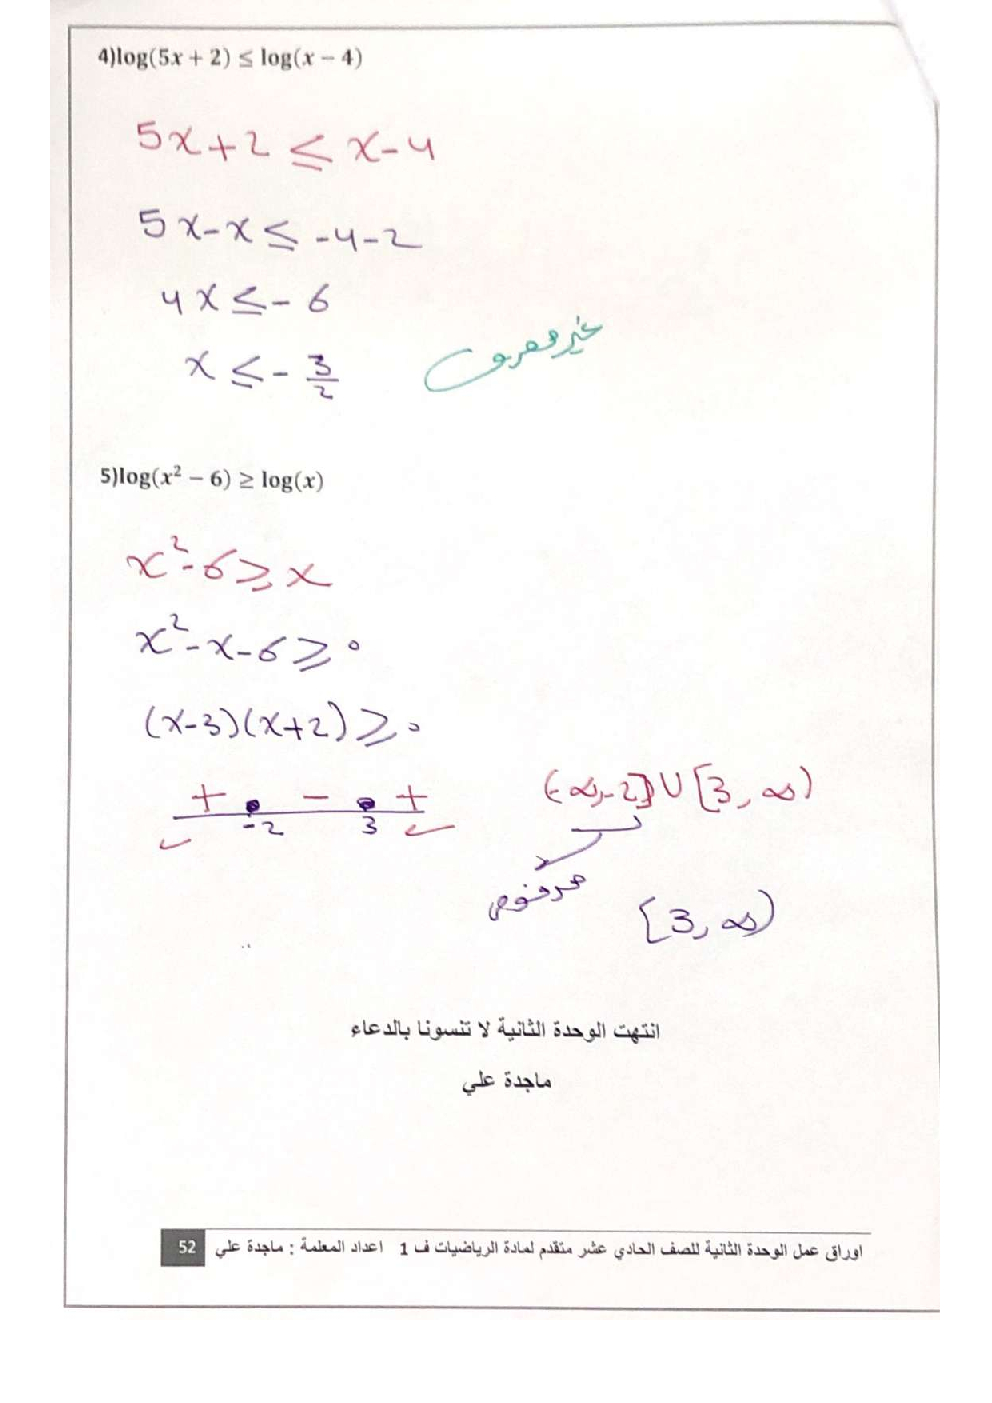 4)log(5x + 2) ≤ log(x − 4)
5x+2 ≤ x-4
5x-x ≤ -4-2
4x ≤ - 6
x ≤ - 3/2
غير معرف
5)log(x² − 6) ≥ log(x)
x²-6 ≥ x
x²-x-6 ≥ 0
(x-3)(x+2) ≥ 0
+ - +
-2 3
(-∞,-2] ∪ [3, ∞)
مرفوض
[3, ∞)
انتهت الوحدة الثانية لا تنسونا بالدعاء
ماجدة علي
اوراق عمل الوحدة الثانية للصف الحادي عشر متقدم لمادة الرياضيات ف 1 اعداد المعلمة : ماجدة علي 52